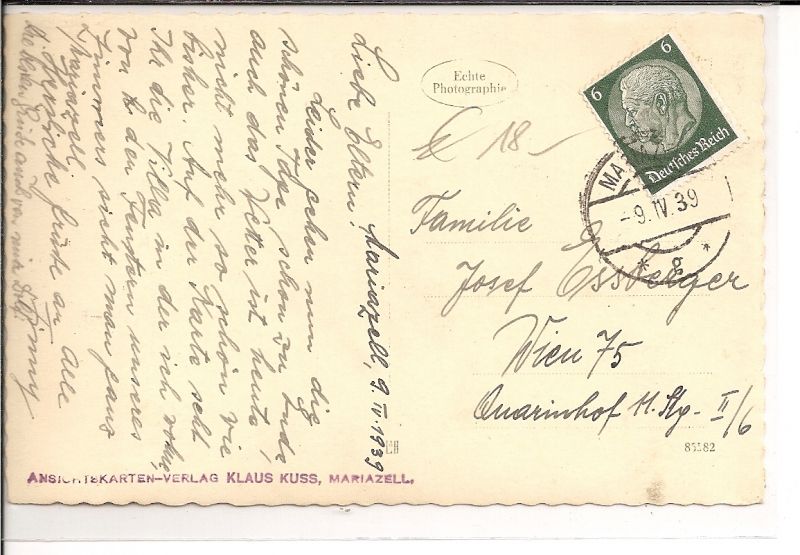 Mariazell, 9. IV. 1939
Liebe Eltern!
Leider gehen nun die
schönen Tage schon zu Ende
auch das Wetter ist heute
nicht mehr so schön wie
bisher. Auf der Karte seht
Ihr die Villa in der ich wohne,
von den Fenstern unseres
Zimmers sieht man ganz
Mariazell.
Herzliche Grüße an Alle
Die besten Grüße auch von
Echte
Photographie
€ 18
Familie
Josef Essberger
Wien 75
Quarinhof 11. Stg. II/6
6
6
Deutsches Reich
MA
-9.IV.39
* g *
85182
ANSICHTSKARTEN-VERLAG KLAUS KUSS, MARIAZELL.